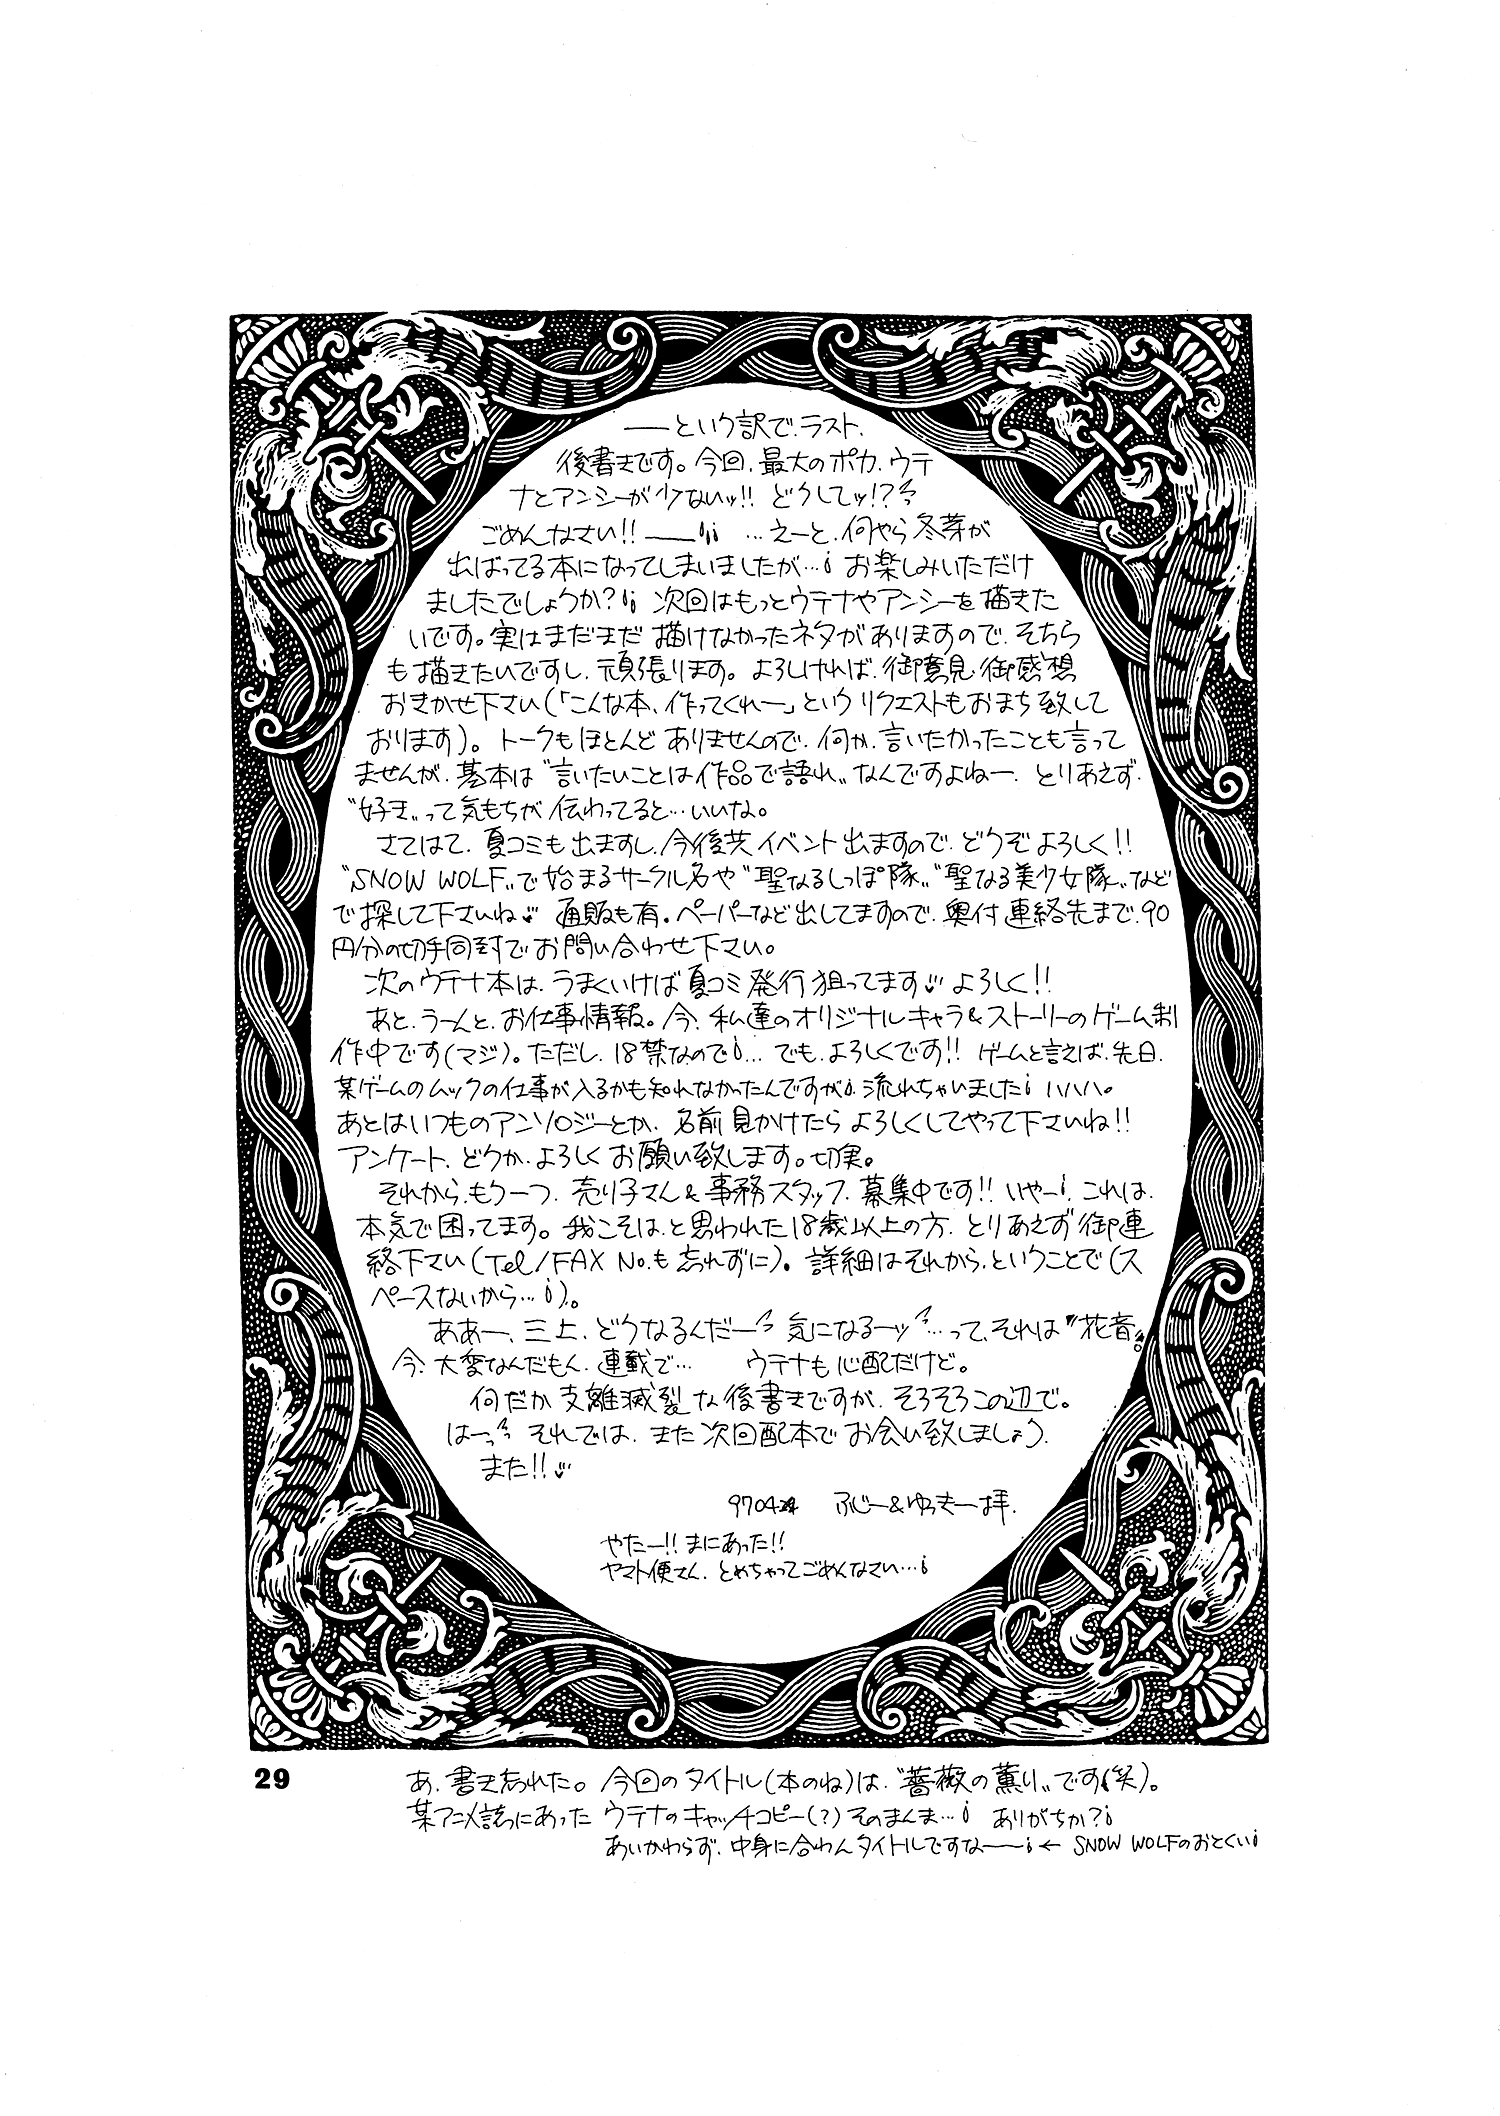 ――という訳で、ラスト、
後書きです。今回、最大のポカ、ウテ
ナとアンシーが少ないッ!! どうしてッ!?
ごめんなさい!! ―― …えーと、何やら冬芽が
出ばってる本になってしまいましたが…¡ お楽しみいただけ
ましたでしょうか?¡¡ 次回はもっとウテナやアンシーを描きた
いです。実はまだまだ描けなかったネタがありますので、そちら
も描きたいですし、頑張ります。よろしければ、御意見、御感想
おきかせ下さい(「こんな本、作ってくれー」というリクエストもおまち致して
おります)。トークもほとんどありませんので、何か、言いたかったことも言って
ませんが、基本は〝言いたいことは作品で語れ〟なんですよねー、とりあえず、
〝好き〟って気もちが伝わってると…いいな。
さてはて、夏コミも出ますし、今後共イベント出ますので、どうぞよろしく!!
〝SNOW WOLF〟で始まるサークル名や〝聖なるしっぽ隊〟〝聖なる美少女隊〟など
で探して下さいね♡ 通販も有。ペーパーなど出してますので、奥付連絡先まで、90
円分の切手同封でお問い合わせ下さい。
次のウテナ本は、うまくいけば夏コミ発行狙ってます♡ よろしく!!
あと、うーんと、お仕事情報。今、私達のオリジナルキャラ&ストーリーのゲーム制
作中です(マジ)。ただし、18禁なので¡… でも、よろしくです!! ゲームと言えば、先日、
某ゲームのムックの仕事が入るかも知れなかったんですが¡、流れちゃいました¡ ハハハ。
あとはいつものアンソロジーとか、名前見かけたらよろしくしてやって下さいね!!
アンケート、どうか、よろしくお願い致します。切実。
それから、もう一つ、売り子さん&事務スタッフ、募集中です!! いやー¡、これは、
本気で困ってます。我こそは、と思われた18歳以上の方、とりあえず御連
絡下さい(Tel/FAX No.も忘れずに)。詳細はそれから、ということで(ス
ペースないから…¡)。
ああー、三上、どうなるんだー 気になるーッ …って、それは〝花音〟。
今、大変なんだもん、連載で… ウテナも心配だけど。
何だか支離滅裂な後書きですが、そろそろこの辺で。
はーっ それでは、また次回配本でお会い致しましょう、
また!!♡
9704 ふじー&ゆっきー拝.
やたー!! まにあった!!
ヤマト便さん、とめちゃってごめんなさい…¡
29
あ、書き忘れた。今回のタイトル(本のね)は、〝薔薇の薫り〟です(笑)。
某アニメ誌にあったウテナのキャッチコピー(?)そのまんま…¡ ありがちか?¡
あいかわらず、中身に合わんタイトルですな――¡ ← SNOW WOLFのおとくい¡